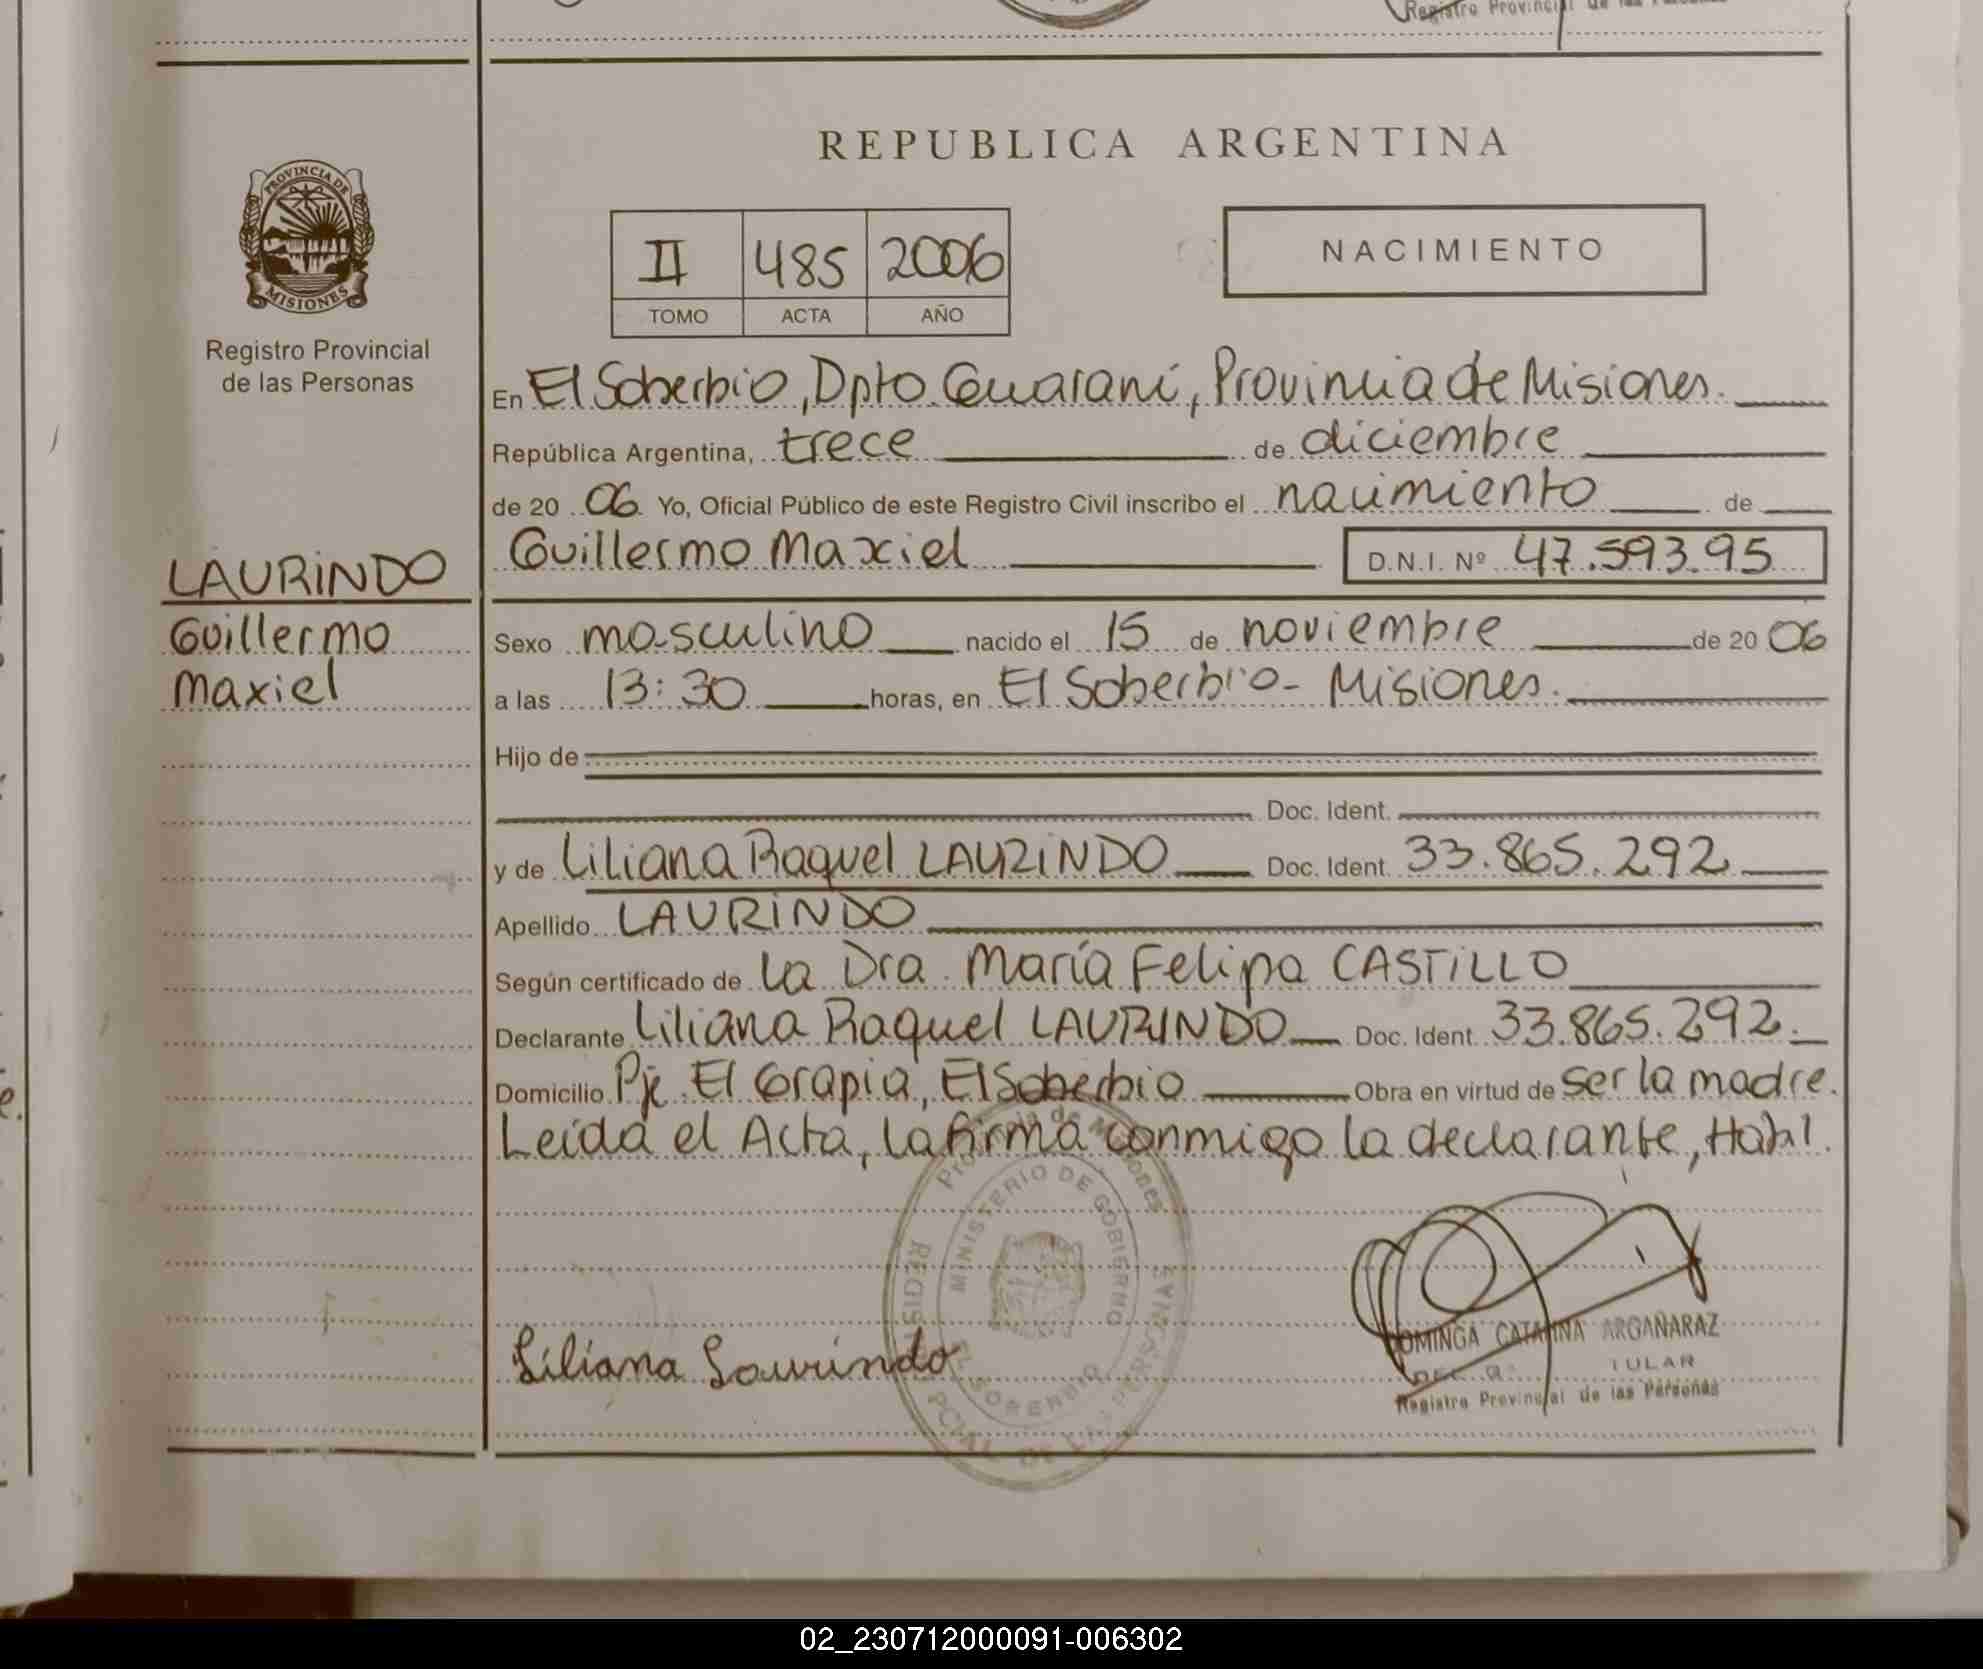 Registro Provincial de las Personas
REPUBLICA ARGENTINA
PROVINCIA DE
MISIONES
Registro Provincial
de las Personas
II 485 2006
TOMO ACTA AÑO
NACIMIENTO
En El Soberbio, Dpto. Guaraní, Provincia de Misiones.
República Argentina, trece de diciembre
de 20 06 Yo, Oficial Público de este Registro Civil inscribo el nacimiento de
LAURINDO
Guillermo
Maxiel
Guillermo Maxiel D.N.I. Nº 47.593.95
Sexo masculino nacido el 15 de noviembre de 20 06
a las 13:30 horas, en El Soberbio - Misiones.
Hijo de
Doc. Ident.
y de Liliana Raquel LAURINDO Doc. Ident. 33.865.292
Apellido LAURINDO
Según certificado de la Dra. María Felipa CASTILLO
Declarante Liliana Raquel LAURINDO Doc. Ident. 33.865.292.
Domicilio Pje. El Grapia, El Soberbio Obra en virtud de ser la madre.
Leída el Acta, la firma conmigo la declarante, Hábil.
Provincia de Misiones
MINISTERIO DE GOBIERNO
EL SOBERBIO
REGISTRO PCIAL DE LAS PERSONAS
Liliana Laurindo
DOMINGA CATALINA ARGAÑARAZ
TITULAR
Registro Provincial de las Personas
02_230712000091-006302